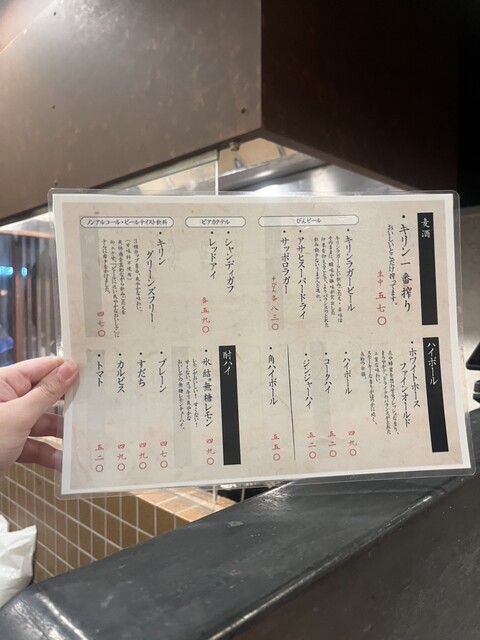 麦酒
・キリン一番搾り
おいしいとこだけ搾ってます。
生中 五七〇
びんビール
・キリンラガービール
・アサヒスーパードライ
・サッポロラガー
中びん各 八三〇
ビアカクテル
・シャンディガフ
・レッドアイ
各五九〇
ノンアルコール・ビールテイスト飲料
・キリン
グリーンズフリー
四七〇
ハイボール
・ホワイトホース
ファインオールド
・ハイボール 四九〇
・コークハイ 五二〇
・ジンジャーハイ 五二〇
・角ハイボール 五五〇
酎ハイ
・氷結®無糖レモン 四九〇
・プレーン 四七〇
・すだち 四九〇
・カルピス 四九〇
・トマト 五二〇